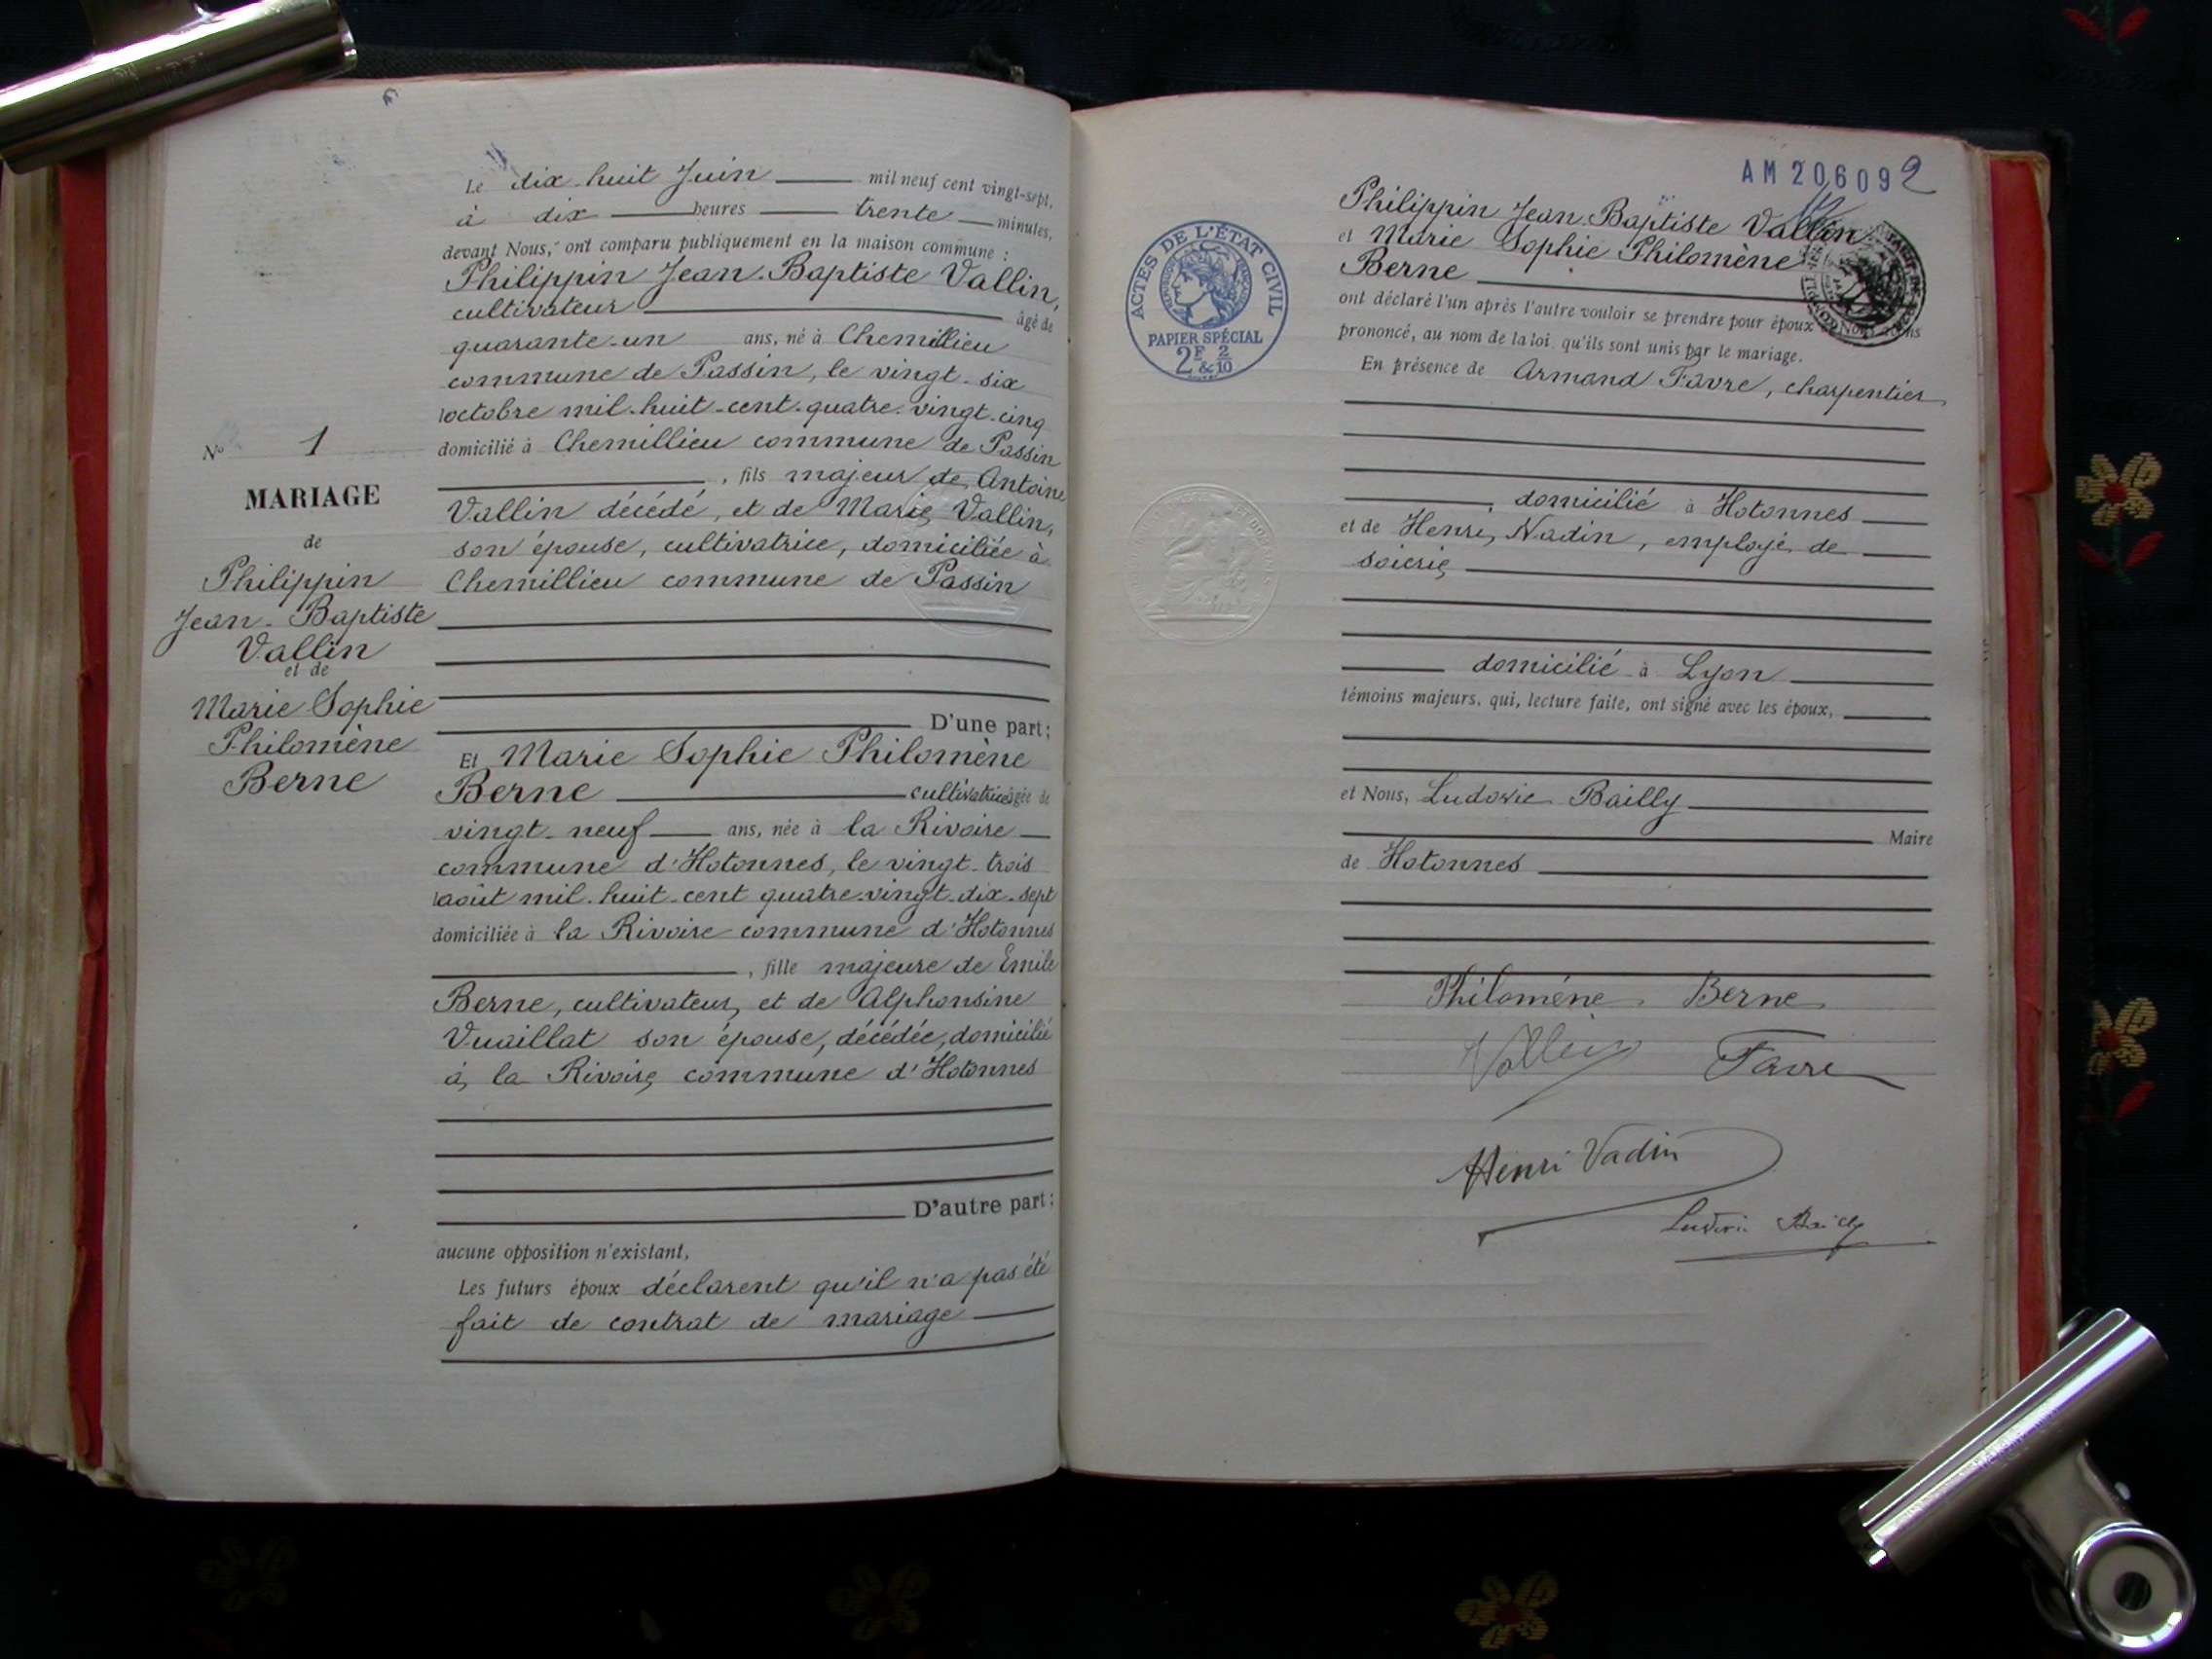 Le dix-huit Juin mil neuf cent vingt-sept,
à dix heures trente minutes,
devant Nous, ont comparu publiquement en la maison commune :
Philippin Jean-Baptiste Vallin,
cultivateur âgé de
quarante-un ans, né à Chemillieu
commune de Passin, le vingt-six
octobre mil-huit-cent-quatre-vingt-cinq
domicilié à Chemillieu commune de Passin
, fils majeur de Antoine
Vallin décédé, et de Marie Vallin,
son épouse, cultivatrice, domiciliée à
Chemillieu commune de Passin
D'une part;
Et Marie Sophie Philomène
Berne cultivatrice âgée de
vingt-neuf ans, née à la Rivoire
commune d'Hotonnes, le vingt-trois
août mil-huit-cent quatre-vingt-dix-sept
domiciliée à la Rivoire commune d'Hotonnes
, fille majeure de Emile
Berne, cultivateur, et de Alphonsine
Vuaillat son épouse, décédée, domicilié
à la Rivoire commune d'Hotonnes
D'autre part;
aucune opposition n'existant,
Les futurs époux déclarent qu'il n'a pas été
fait de contrat de mariage
No 1
MARIAGE
de
Philippin
Jean-Baptiste
Vallin
et de
Marie Sophie
Philomène
Berne
AM 206092
ACTES DE L'ÉTAT CIVIL
PAPIER SPÉCIAL
2F & 2/10
Philippin Jean-Baptiste Vallin
et Marie Sophie Philomène
Berne
ont déclaré l'un après l'autre vouloir se prendre pour époux et Nous avons
prononcé, au nom de la loi qu'ils sont unis par le mariage.
En présence de Armand Favre, charpentier,
, domicilié à Hotonnes
et de Henri Nadin, employé de
soierie
domicilié à Lyon
témoins majeurs, qui, lecture faite, ont signé avec les époux,
et Nous, Ludovic Bailly
Maire
de Hotonnes
Philomène Berne
Vallin Favre
Henri Vadin
Ludovic Bailly